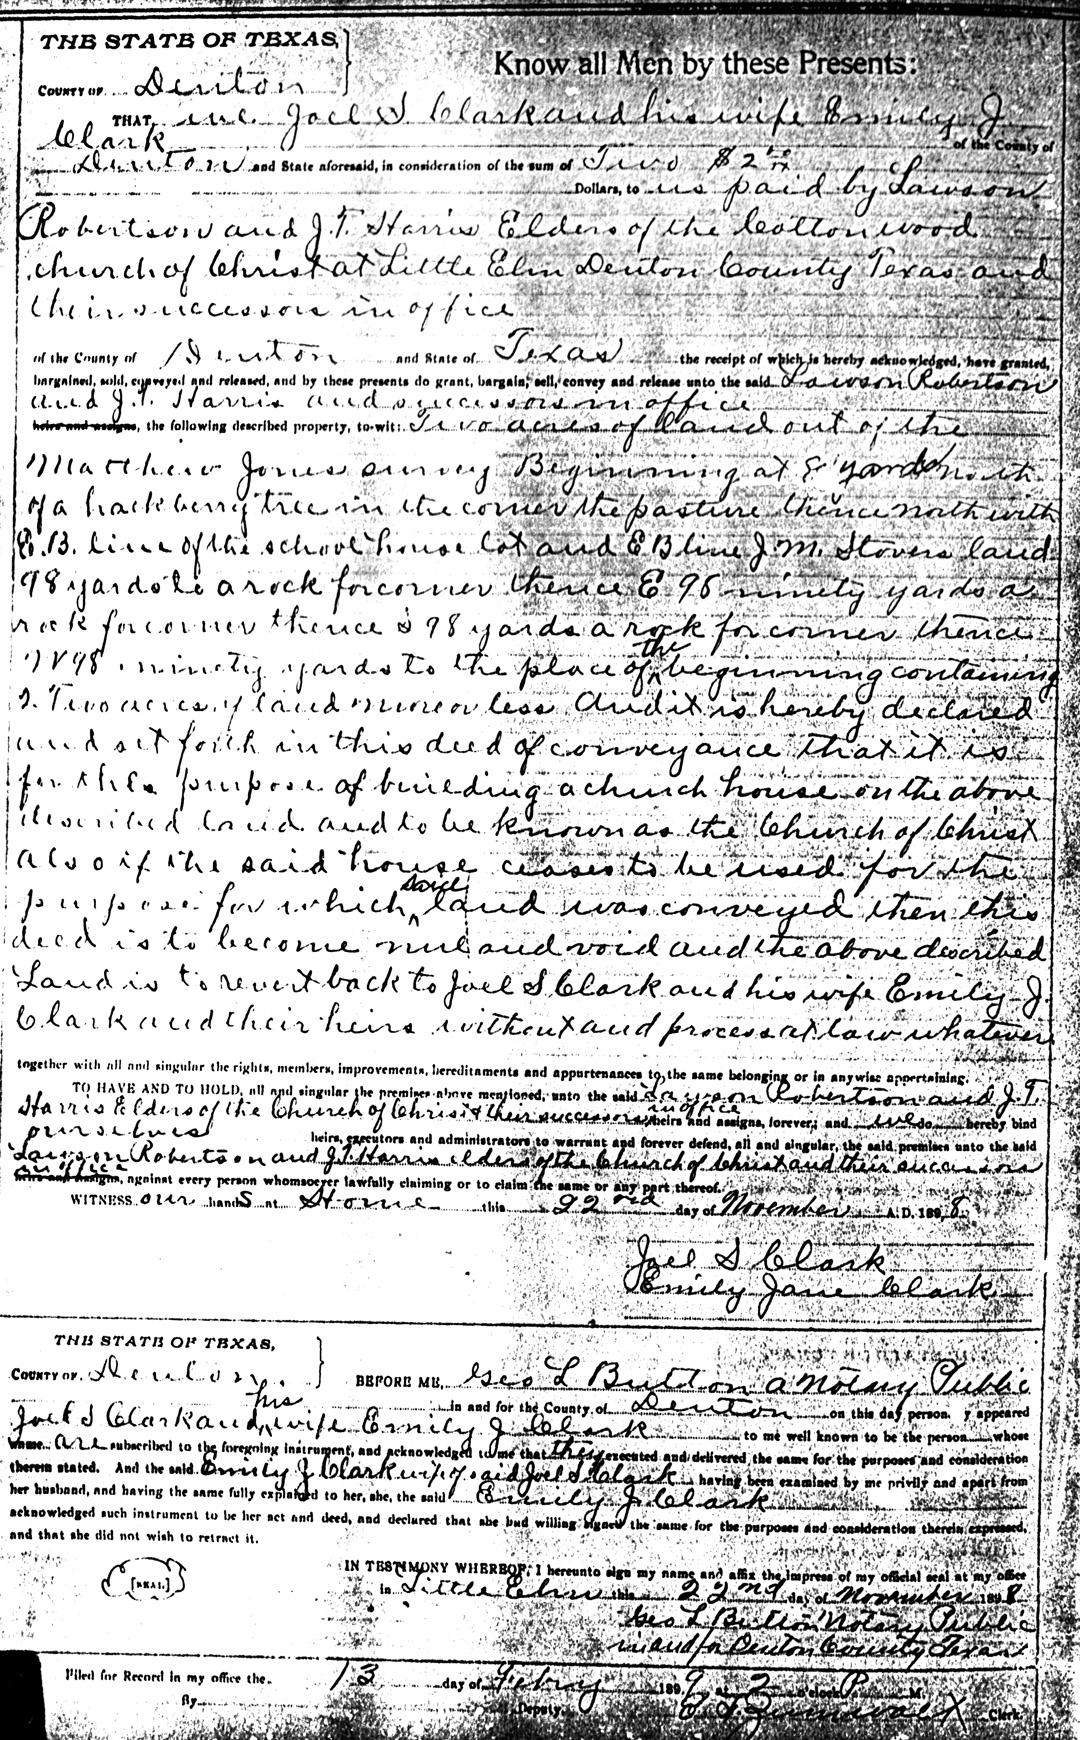 THE STATE OF TEXAS,
COUNTY OF Denton
Know all Men by these Presents:
THAT we Joel S Clark and his wife Emily J
Clark of the County of
Denton and State aforesaid, in consideration of the sum of Two $2
Dollars, to us paid by Lawson
Robertson and J.T. Harris Elders of the Cottonwood
church of Christ at Little Elm Denton County Texas and
their successors in office
of the County of Denton and State of Texas the receipt of which is hereby acknowledged, have granted,
bargained, sold, conveyed and released, and by these presents do grant, bargain, sell, convey and release unto the said Lawson Robertson
and J.T. Harris and successors in office
heirs and assigns, the following described property, to-wit: Two acres of land out of the
Matthew Jones survey Beginning at 8 yards north
of a hackberry tree in the corner the pasture thence north with
E.B. line of the school house lot and E B line J.M. Stovers land
98 yards to a rock for corner thence E 98 ninety yards a
rock for corner thence S 98 yards a rock for corner thence
W 98 ninety yards to the place of the beginning containing
2. Two acres of land more or less. And it is hereby declared
and set forth in this deed of conveyance that it is
for the purpose of building a church house on the above
described land and to be known as the Church of Christ
also if the said house ceases to be used for the
purpose for which said land was conveyed then this
deed is to become null and void and the above described
Land is to revert back to Joel S Clark and his wife Emily J.
Clark and their heirs without and process at law whatever
together with all and singular the rights, members, improvements, hereditaments and appurtenances to the same belonging or in anywise appertaining.
TO HAVE AND TO HOLD, all and singular the premises above mentioned, unto the said Lawson Robertson and J.T.
Harris Elders of the Church of Christ & their successors in office heirs and assigns, forever; and we do hereby bind
ourselves heirs, executors and administrators to warrant and forever defend, all and singular, the said premises unto the said
Lawson Robertson and J.T. Harris elders of the Church of Christ and their successors
in office
heirs and assigns, against every person whomsoever lawfully claiming or to claim the same or any part thereof.
WITNESS our hands at Home this 22nd day of November A.D. 1898.
Joel S Clark
Emily Jane Clark
THE STATE OF TEXAS,
COUNTY OF Denton.
BEFORE ME, Geo L Button a Notary Public
in and for the County of Denton on this day person y appeared
Joel S Clark and his wife Emily J Clark to me well known to be the person whose
name are subscribed to the foregoing instrument, and acknowledged to me that they executed and delivered the same for the purposes and consideration
therein stated. And the said Emily J Clark wife of said Joel S Clark having been examined by me privily and apart from
her husband, and having the same fully explained to her, she, the said Emily J. Clark
acknowledged such instrument to be her act and deed, and declared that she had willing signed the same for the purposes and consideration therein expressed,
and that she did not wish to retract it.
[SEAL]
IN TESTIMONY WHEREOF, I hereunto sign my name and affix the impress of my official seal at my office
in Little Elm this 22nd day of November 1898
Geo L Button Notary Public
in and for Denton County Texas
Filed for Record in my office the 13 day of Febry 1899 at 2 o'clock P M.
By Deputy. Clerk.